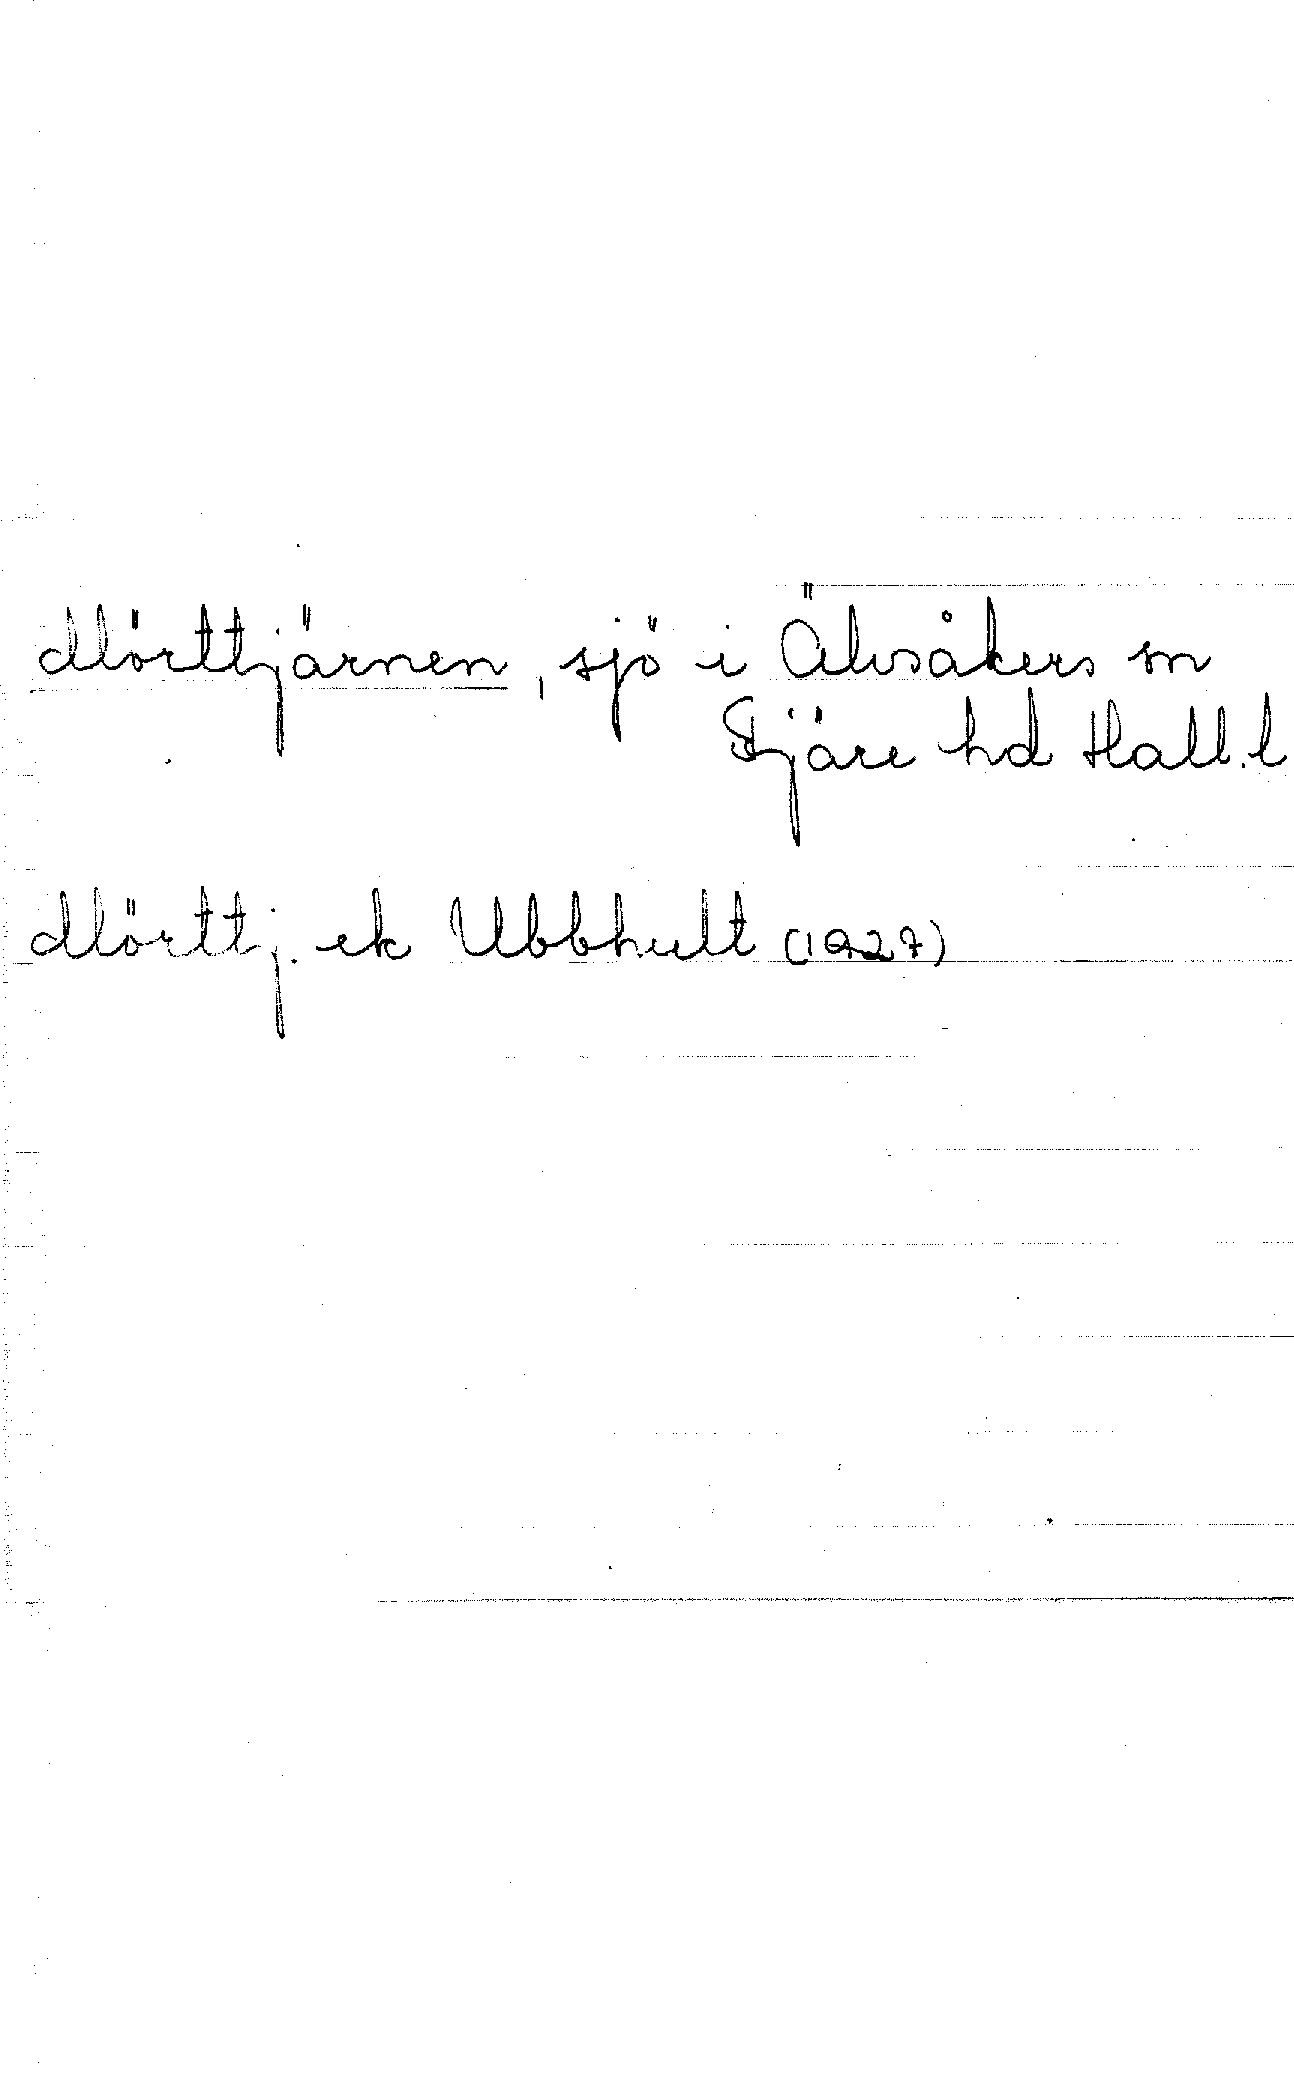 Mörttjärnen, sjö i Älvsåkers sn
Fjäre hd Hall.l
Mörttj. ek Ubbhult (1927)